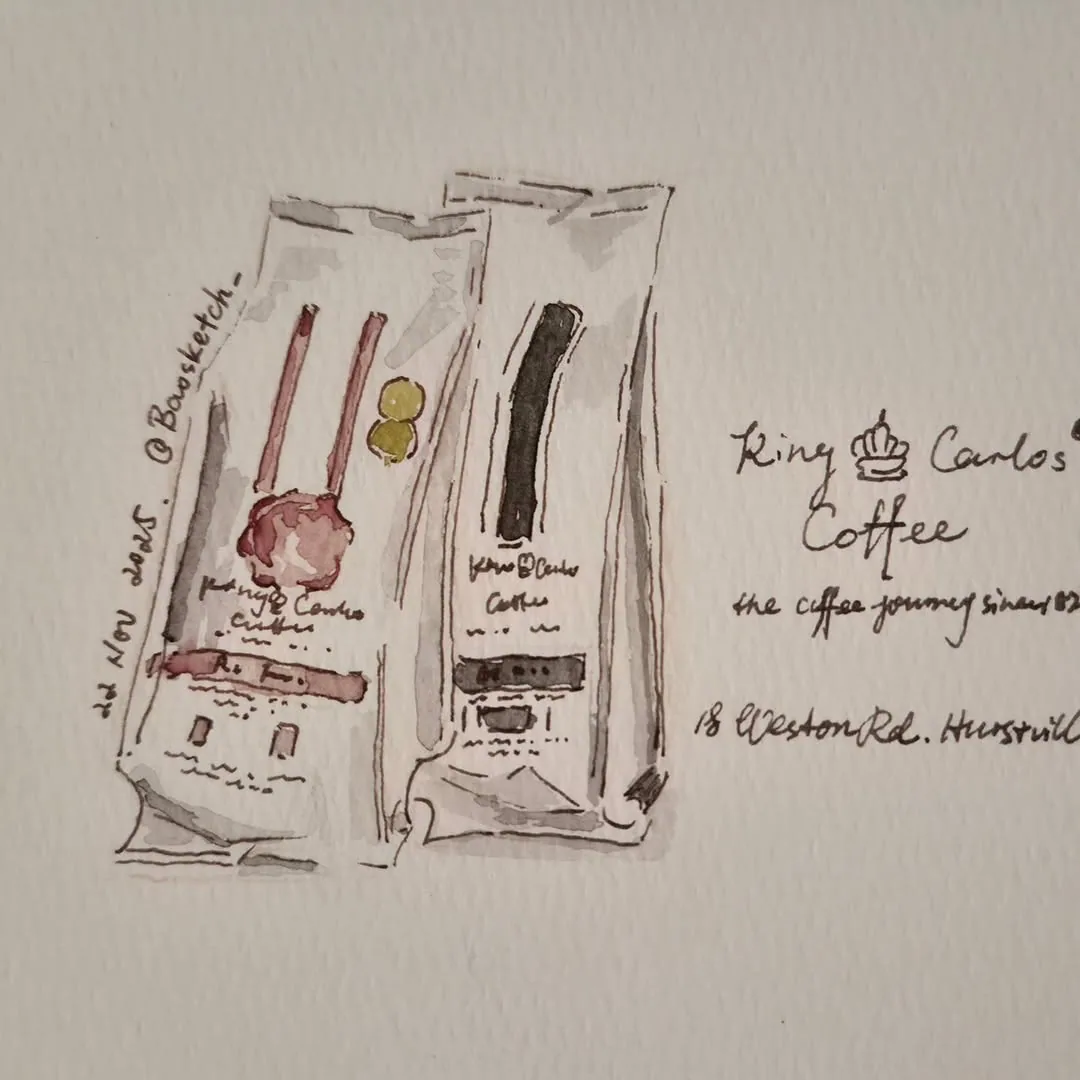 22 Nov 2025. @Baosketch_
King Carlos
Coffee
King Carlo
Coffee
King Carlos
Coffee
the coffee journey since
18 Weston Rd. Hurstvill